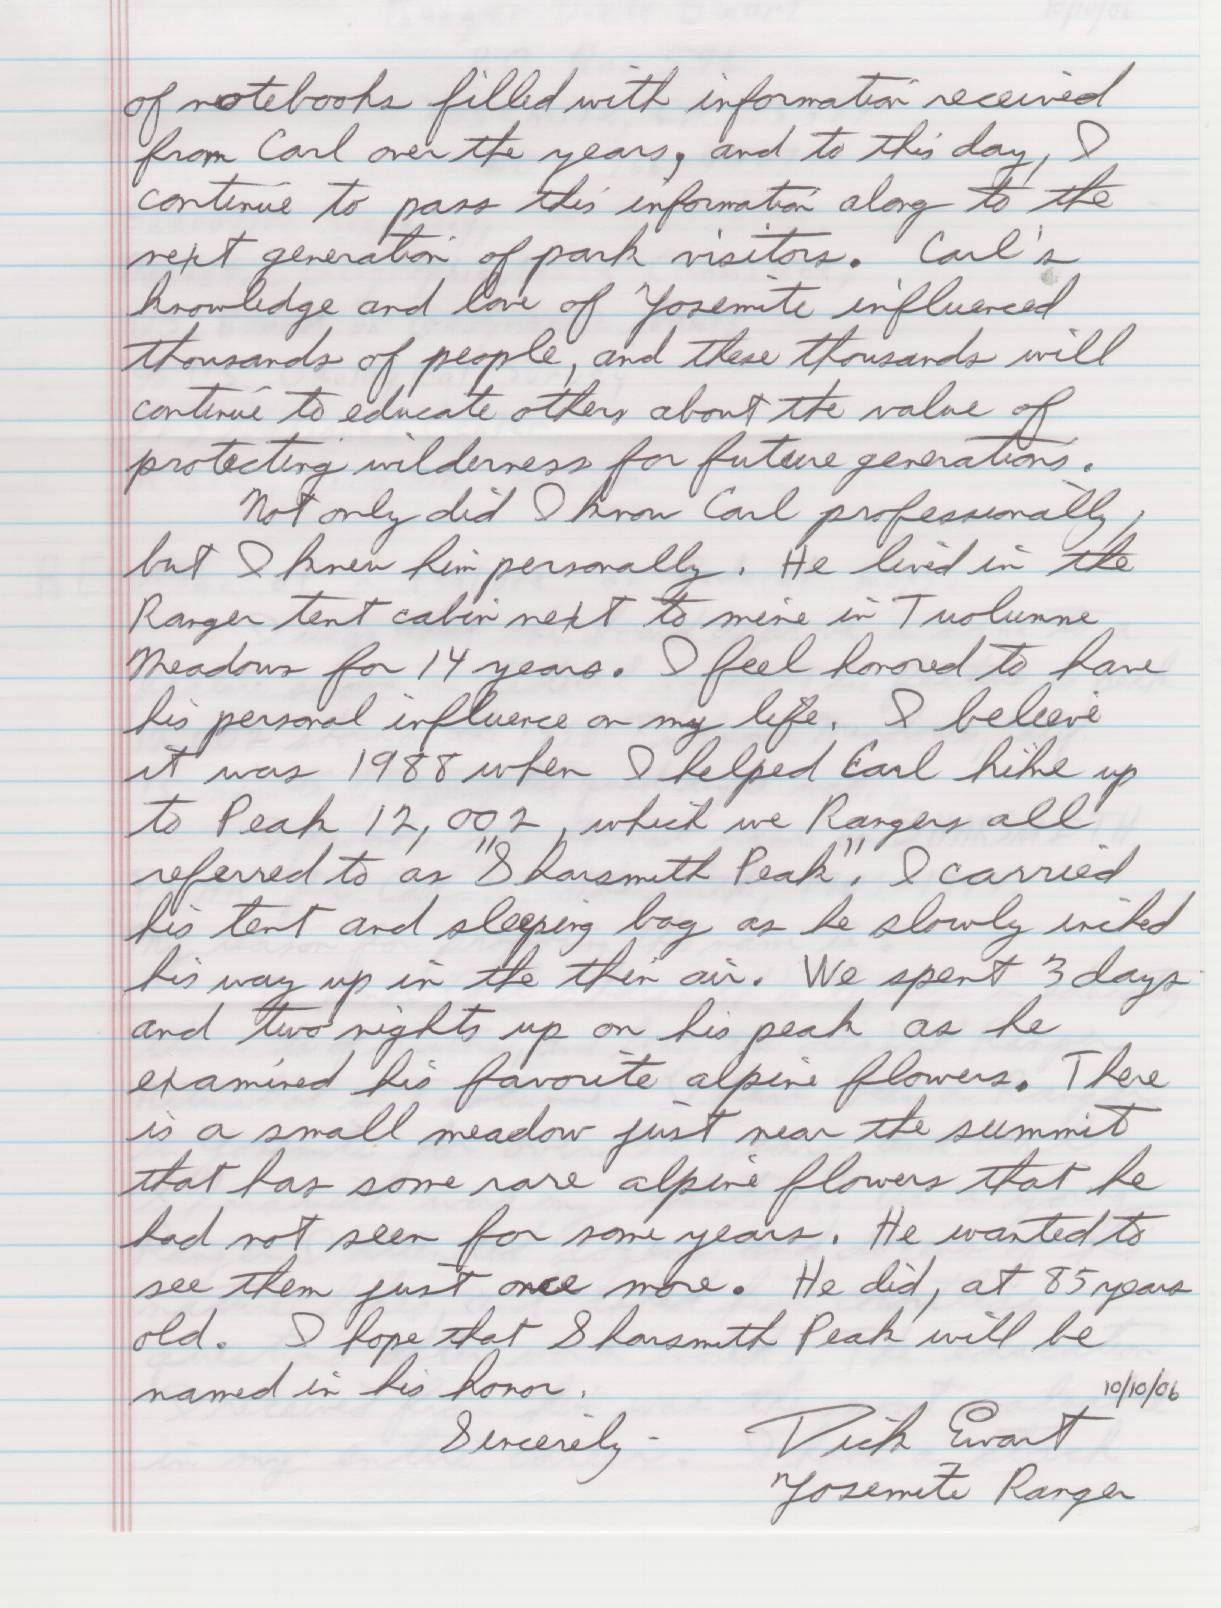 of notebooks filled with information received
from Carl over the years, and to this day, I
continue to pass this information along to the
next generation of park visitors. Carl's
knowledge and love of Yosemite influenced
thousands of people, and these thousands will
continue to educate others about the value of
protecting wilderness for future generations.
Not only did I know Carl professionally,
but I knew him personally. He lived in the
Ranger tent cabin next to mine in Tuolumne
Meadows for 14 years. I feel honored to have
his personal influence on my life. I believe
it was 1988 when I helped Carl hike up
to Peak 12,002, which we Rangers all
referred to as "Sharsmith Peak". I carried
his tent and sleeping bag as he slowly inched
his way up in the thin air. We spent 3 days
and two nights up on his peak as he
examined his favorite alpine flowers. There
is a small meadow just near the summit
that has some rare alpine flowers that he
had not seen for some years. He wanted to
see them just once more. He did, at 85 years
old. I hope that Sharsmith Peak will be
named in his honor.
10/10/06
Sincerely - Dick Ewart
Yosemite Ranger